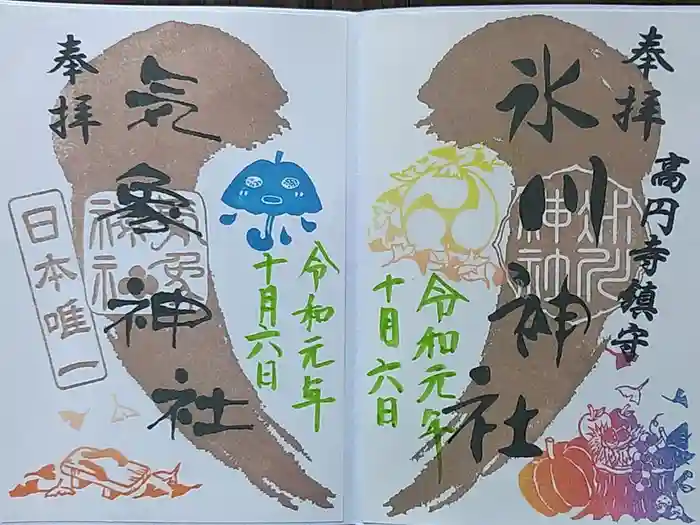 高円寺鎮守
奉拝
氷川神社
氷川神社
令和元年
十月六日
奉拝
気象神社
気象神社
日本唯一
令和元年
十月六日